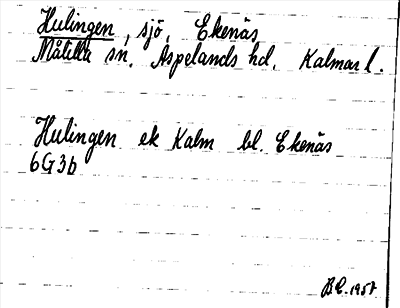 Hulingen, sjö, Ekenäs
Målilla sn. Aspelands hd. Kalmar l.
Hulingen ek Kalm bl. Ekenäs
6G3b
1957